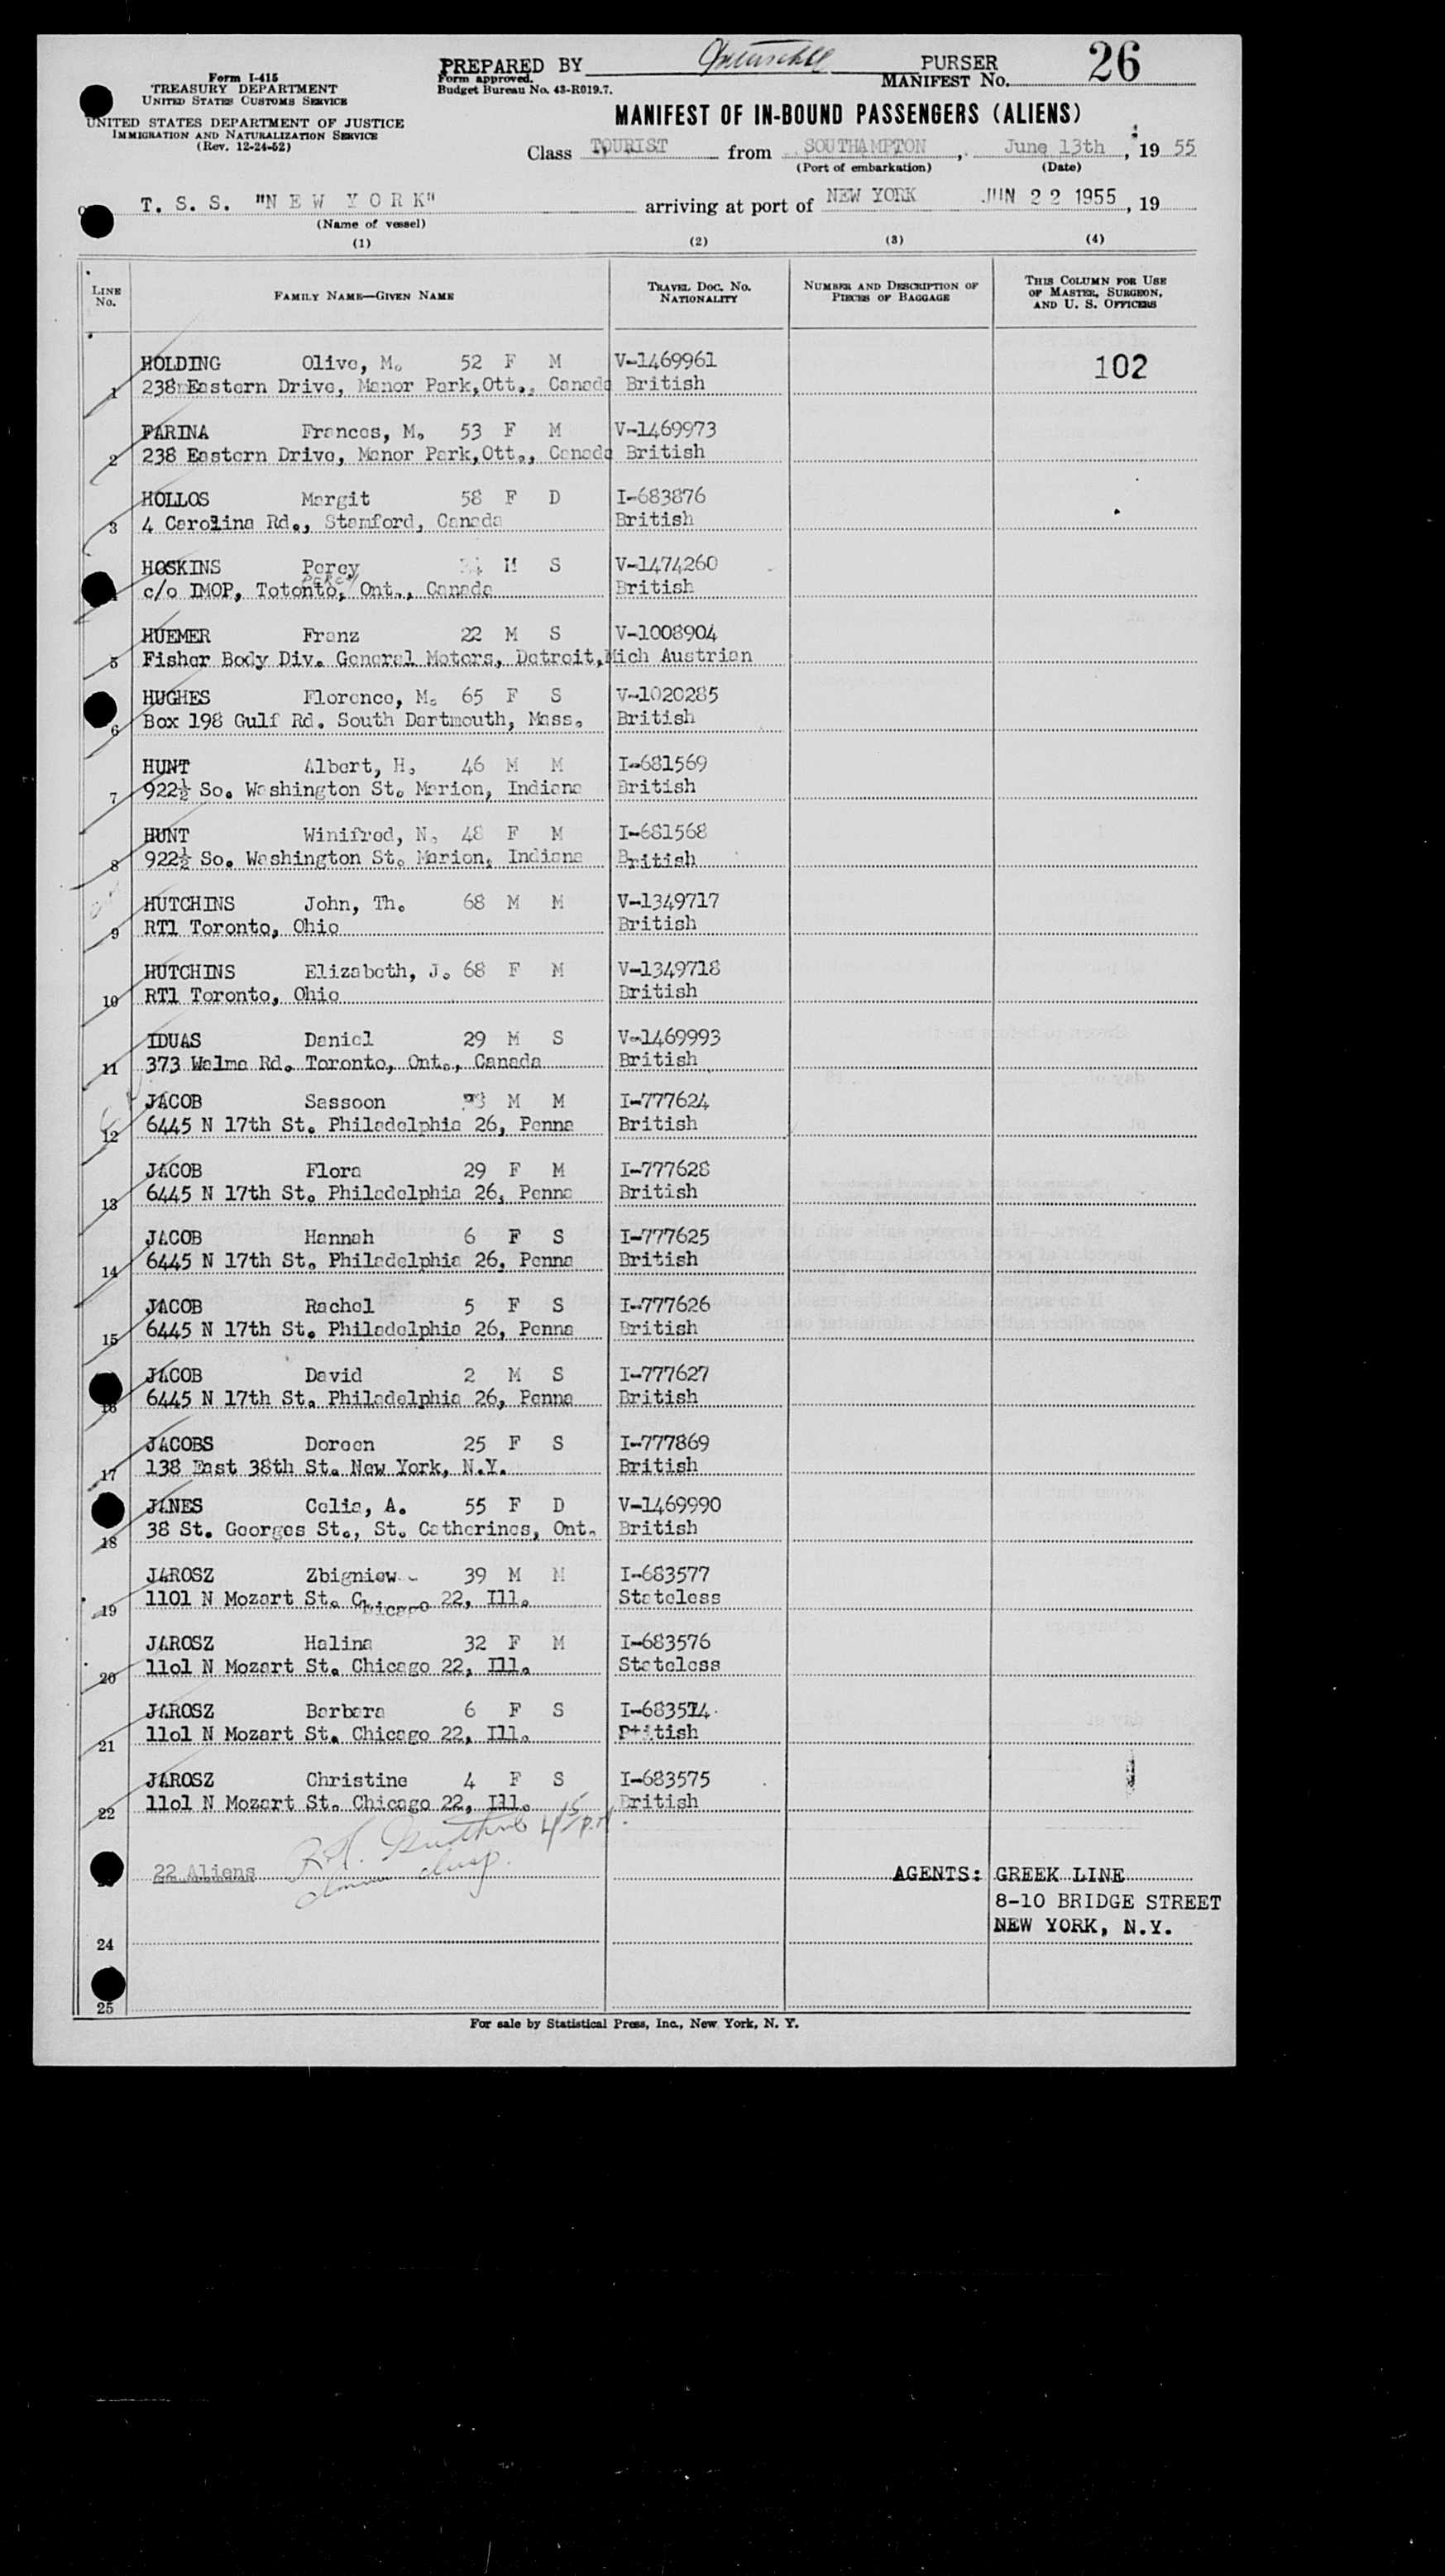 PREPARED BY PURSER 26
Form I-415 Form approved. MANIFEST No.
TREASURY DEPARTMENT Budget Bureau No. 43-R019.7.
UNITED STATES CUSTOMS SERVICE
UNITED STATES DEPARTMENT OF JUSTICE
IMMIGRATION AND NATURALIZATION SERVICE
(Rev. 12-24-52)
MANIFEST OF IN-BOUND PASSENGERS (ALIENS)
Class TOURIST from SOUTHAMPTON, June 13th, 19 55
(Port of embarkation) (Date)
T. S. S. "N E W Y O R K" arriving at port of NEW YORK JUN 22 1955, 19
(Name of vessel)
(1) (2) (3) (4)
LINE No. FAMILY NAME—GIVEN NAME TRAVEL DOC. NO. NATIONALITY NUMBER AND DESCRIPTION OF PIECES OF BAGGAGE THIS COLUMN FOR USE OF MASTER, SURGEON, AND U. S. OFFICERS
HOLDING Olive, M. 52 F M V-1469961 102
1 238 Eastern Drive, Manor Park,Ott., Canada British
FARINA Frances, M. 53 F M V-1469973
2 238 Eastern Drive, Manor Park,Ott., Canada British
HOLLOS Margit 58 F D I-683876
3 4 Carolina Rd., Stamford, Canada British
HOSKINS Percy M S V-1474260
Percy
c/o IMOP, Totonto, Ont., Canada British
HUEMER Franz 22 M S V-1008904
5 Fisher Body Div. General Motors, Detroit,Mich Austrian
HUGHES Florence, M. 65 F S V-1020285
6 Box 198 Gulf Rd. South Dartmouth, Mass. British
HUNT Albert, H. 46 M M I-681569
7 922½ So. Washington St. Marion, Indiana British
HUNT Winifred, N. 48 F M I-681568
8 922½ So. Washington St. Marion, Indiana British
HUTCHINS John, Th. 68 M M V-1349717
9 RT1 Toronto, Ohio British
HUTCHINS Elizabeth, J. 68 F M V-1349718
10 RT1 Toronto, Ohio British
IDUAS Daniel 29 M S V-1469993
11 373 Walma Rd. Toronto, Ont., Canada British
JACOB Sassoon M M I-777624
12 6445 N 17th St. Philadelphia 26, Penna British
JACOB Flora 29 F M I-777628
13 6445 N 17th St. Philadelphia 26, Penna British
JACOB Hannah 6 F S I-777625
14 6445 N 17th St. Philadelphia 26, Penna British
JACOB Rachel 5 F S I-777626
15 6445 N 17th St. Philadelphia 26, Penna British
JACOB David 2 M S I-777627
16 6445 N 17th St. Philadelphia 26, Penna British
JACOBS Doreen 25 F S I-777869
17 138 East 38th St. New York, N.Y. British
JANES Celia, A. 55 F D V-1469990
18 38 St. Georges St., St. Catherines, Ont. British
JAROSZ Zbigniew 39 M M I-683577
19 1101 N Mozart St. Chicago 22, Ill. Stateless
JAROSZ Halina 32 F M I-683576
20 11o1 N Mozart St. Chicago 22, Ill. Stateless
JAROSZ Barbara 6 F S I-683574
21 11o1 N Mozart St. Chicago 22, Ill. British
JAROSZ Christine 4 F S I-683575
22 11o1 N Mozart St. Chicago 22, Ill. British
22 Aliens AGENTS: GREEK LINE
8-10 BRIDGE STREET
NEW YORK, N.Y.
24
25
For sale by Statistical Press, Inc., New York, N. Y.